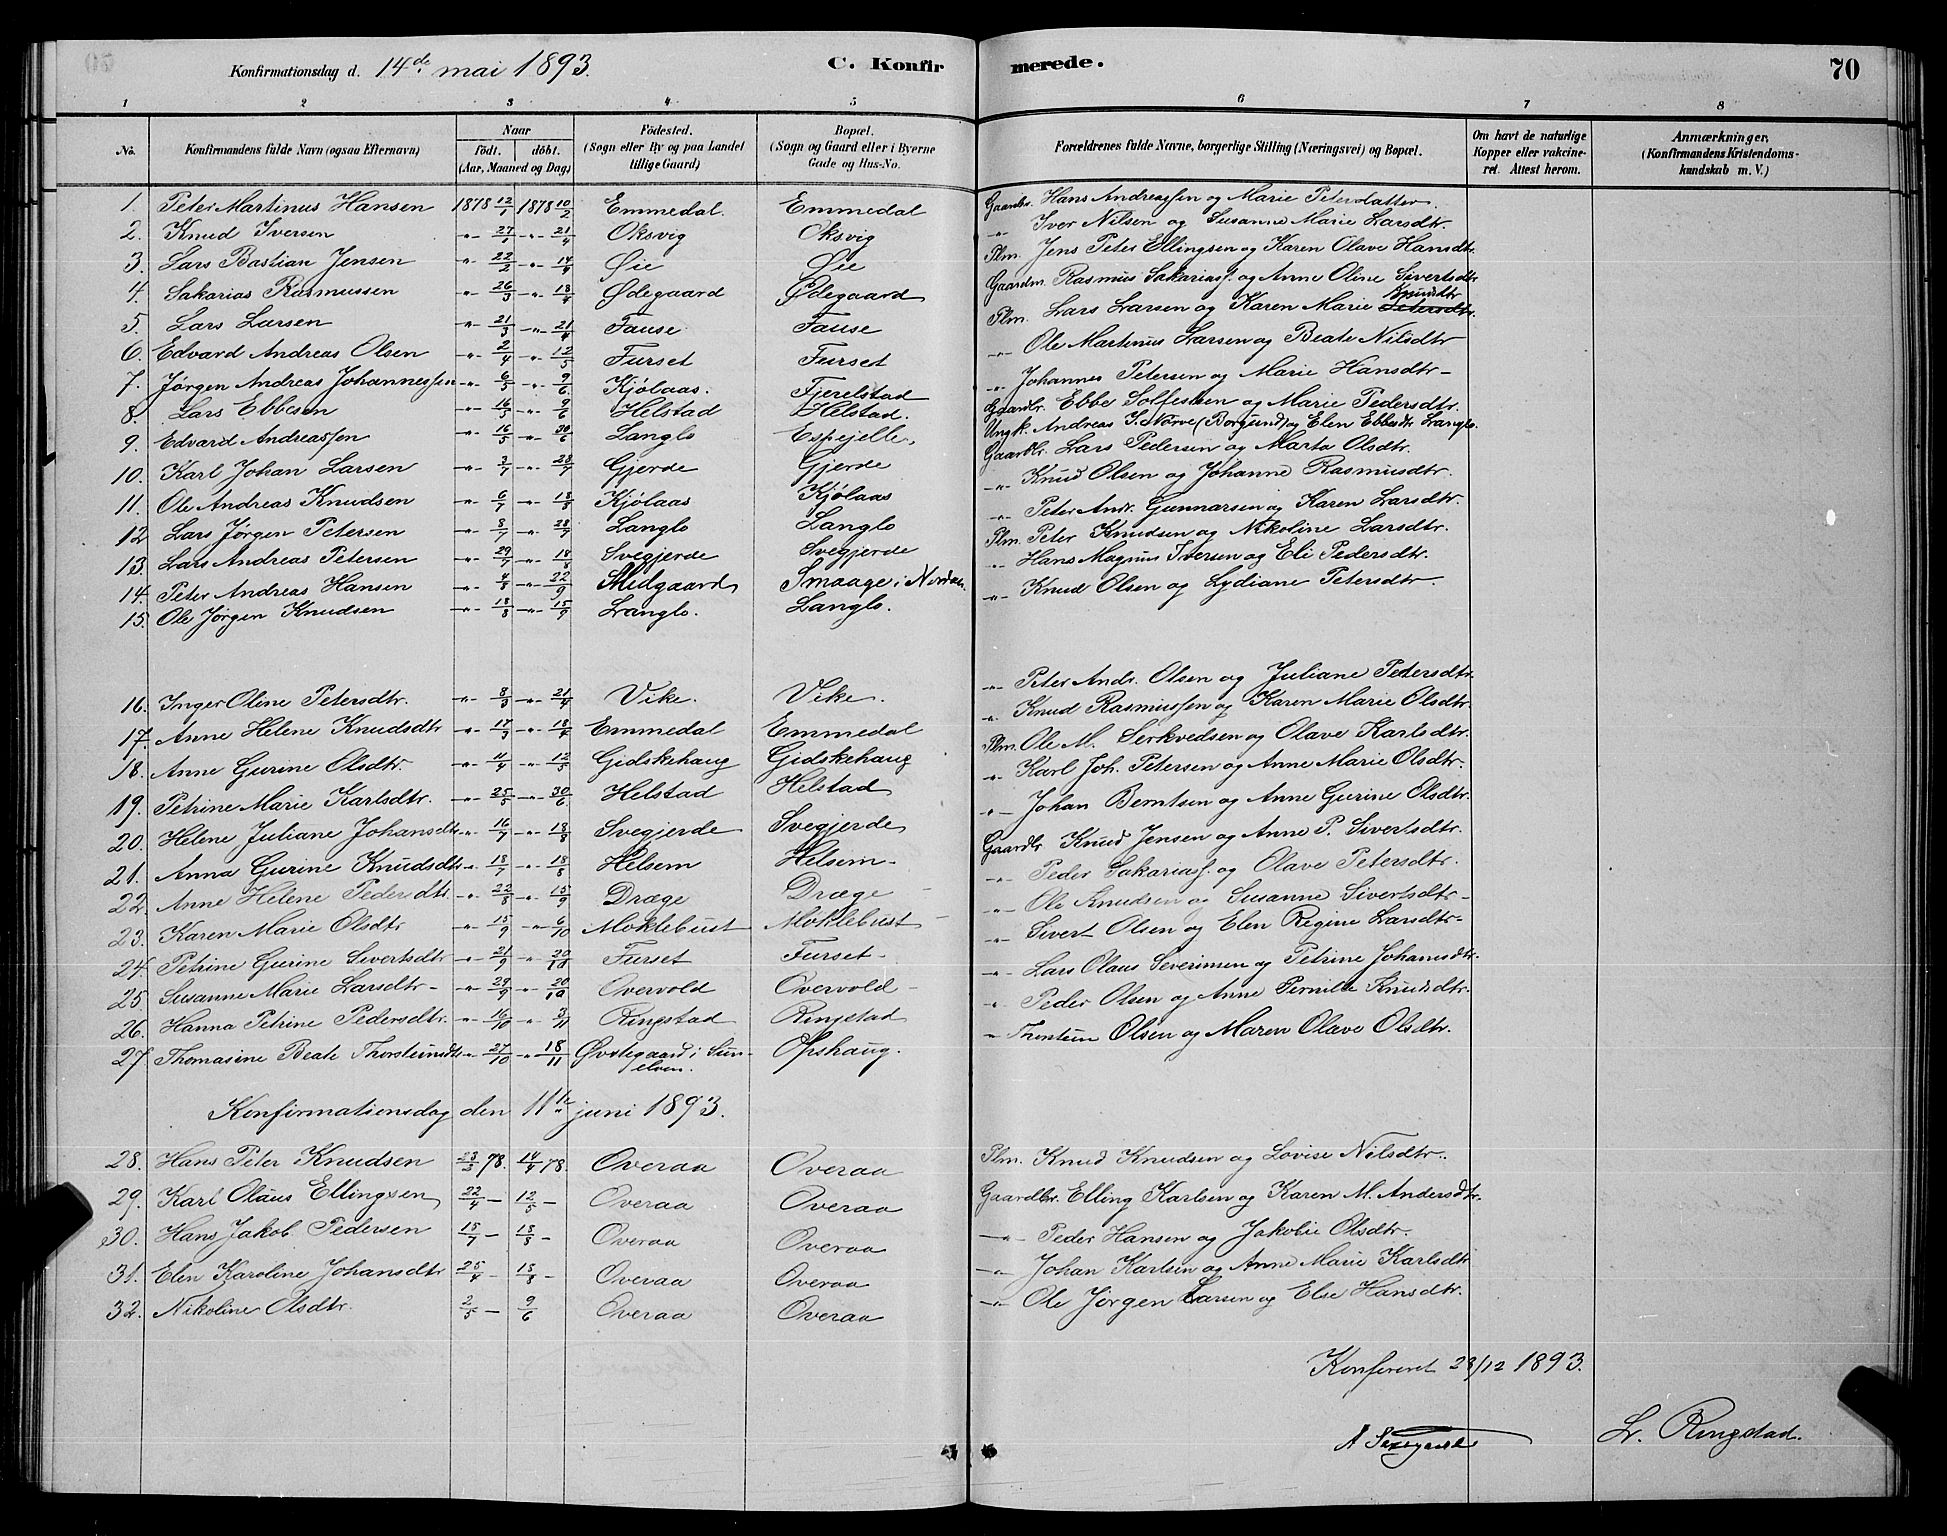 Konfirmationsdag d. 14de mai 1893. C. Konfirmerede. 70
1 2 3 4 5 6 7 8
No. Konfirmandens fulde Navn (ogsaa Efternavn) Naar födt. döbt. (Aar, Maaned og Dag) Födested. (Sogn eller By og paa Landet tillige Gaard) Bopæl. (Sogn og Gaard eller i Byerne Gade og Hus-No. Forældrenes fulde Navne, borgerlige Stilling (Næringsvei) og Bopæl. Om havt de naturlige Kopper eller vakcineret. Attest herom. Anmærkninger, (Konfirmandens Kristendomskundskab m. V.)
1. Peter Martinus Hansen 1878 12/1 1878 10/2 Emmedal. Emmedal Gaardbr. Hans Andreassen og Marie Petersdatter.
2. Knud Iversen -"- 27/1 -"- 21/4 Oksvig Oksvig -"- Iver Nilsen og Susanne Marie Larsdtr.
3. Lars Bastian Jensen -"- 22/2 -"- 14/4 Øie Øie Plm. Jens Peter Ellingsen og Karen Olave Hansdtr.
4. Sakarias Rasmussen -"- 26/3 -"- 18/4 Ødegaard Ødegaard Gaardm. Rasmus Sakarias. og Anne Oline Sivertsdtr
5. Lars Larsen -"- 21/3 -"- 21/4 Fause Fause Plm. Lars Larsen og Karen Marie Petersdtr. Knudsdtr
6. Edvard Andreas Olsen -"- 2/4 -"- 12/5 Furset Furset -"- Ole Martinus Larsen og Beate Nilsdtr
7. Jørgen Andreas Johannessen -"- 6/5 -"- 9/6 Kjølaas. Fjerelstad -"- Johannes Petersen og Marie Hansdtr-
8. Lars Ebbesen -"- 16/5 -"- 9/6 Helstad Helstad. Gaardbr. Ebbe Solfesten og Marie Pedersdtr.
9. Edvard Andreassen -"- 16/5 -"- 30/6 Langlo Espejelle. Ungk. Andreas I. Nørve (Borgund) og Elen Ebbesdtr Langlo.
10. Karl Johan Larsen -"- 3/7 -"- 28/7 Gjerde Gjerde Gaardbr. Lars Pedersen og Marta Olsdtr.
11. Ole Andreas Knudsen -"- 6/7 -"- 18/8 Kjølaas Kjølaas -"- Knud Olsen og Johanne Rasmusdtr.
12 Lars Jørgen Petersen -"- 8/7 -"- 28/7 Langlo Langlo -"- Peter Andr. Gunnarsen og Karen Larsdtr.
13. Lars Andreas Petersen -"- 29/7 -"- 18/8 Svegjerde Svegjerde Plm. Peter Knudsen og Nikoline Larsdtr.
14. Peter Andreas Hansen -"- 4/8 -"- 22/9 Midgaard Smaage i Nordal. -"- Hans Magnus Iversen og Eli Pedersdtr.
15. Ole Jørgen Knudsen -"- 18/8 -"- 15/9 Langlo. Langlo. -"- Knud Olsen og Lydiane Petersdtr.
16. Inger Oline Petersdtr. -"- 8/3 -"- 21/4 Vike. Vike. -"- Peter Andr. Olsen og Juliane Petersdtr.
17. Anne Helene Knudsdtr -"- 17/3 -"- 18/4 Emmedal Emmedal -"- Knud Rasmussen og Karen Marie Olsdtr.
18. Anne Gurine Olsdtr. -"- 11/4 -"- 12/5 Gidskehaug Gidskehaug Plm. Ole M. Serkvedsen og Olave Karlsdtr.
19. Petrine Marie Karlsdtr. -"- 25/5 -"- 30/6 Helstad Helstad -"- Karl Joh. Petersen og Anne Marie Olsdtr.
20. Helene Juliane Johansdtr -"- 16/7 -"- 18/8 Svegjerde Svegjerde -"- Johan Berntsen og Anne Gurine Olsdtr.
21. Anna Gurine Knudsdtr -"- 18/7 -"- 18/8 Helsem Helsem- Gaardbr Knud Jensen og Anne P. Sivertsdtr.
22. Anne Helene Pedersdtr. -"- 22/8 -"- 15/9 Dræge Dræge -"- Peder Sakarias. og Olave Petersdtr.
23. Karen Marie Olsdtr -"- 15/9 -"- 6/10 Moklebust Moklebust -"- Ole Knudsen og Susanne Sivertsdtr-
24. Petrine Gurine Sivertsdtr -"- 21/9 -"- 20/10 Furset Furset- -"- Sivert Olsen og Elen Regine Larsdtr-
25 Susanne Marie Larsdtr- -"- 29/9 -"- 20/10 Overvold Overvold- -"- Lars Olaus Severinsen og Petrine Johansdtr.
26. Hanna Petrine Pedersdtr. -"- 16/10 -"- 3/11 Ringstad Ringstad -"- Peder Olsen og Anne Pernille Knudsdtr.
27. Thomasine Beate Thorsteinsdtr -"- 27/10 -"- 18/11 Øvstegaard i Sunelven. Opshaug. -"- Thorstein Olsen og Maren Olave Olsdtr.
Konfirmationsdag den 11te juni 1893.
28. Hans Peter Knudsen 23/3 78. 14/4 78. Overaa Overaa Plm. Knud Knudsen og Lovise Nilsdtr.
29. Karl Olaus Ellingsen 22/4 - 12/5 - Overaa Overaa Gaardbr. Elling Karlsen og Karen M. Andersdtr.
30. Hans Jakob Pedersen 15/7 - 18/8 - Overaa Overaa -"- Peder Hansen og Jakobie Olsdtr.
31. Elen Karoline Johansdtr 25/4 - 18/8 - Overaa Overaa -"- Johan Karlsen og Anne Marie Karlsdtr
32. Nikoline Olsdtr. 2/5 - 9/6 Overaa Overaa -"- Ole Jørgen Larsen og Else Hansdtr.
Konfereret 28/12 1893.
L. Ringstad.